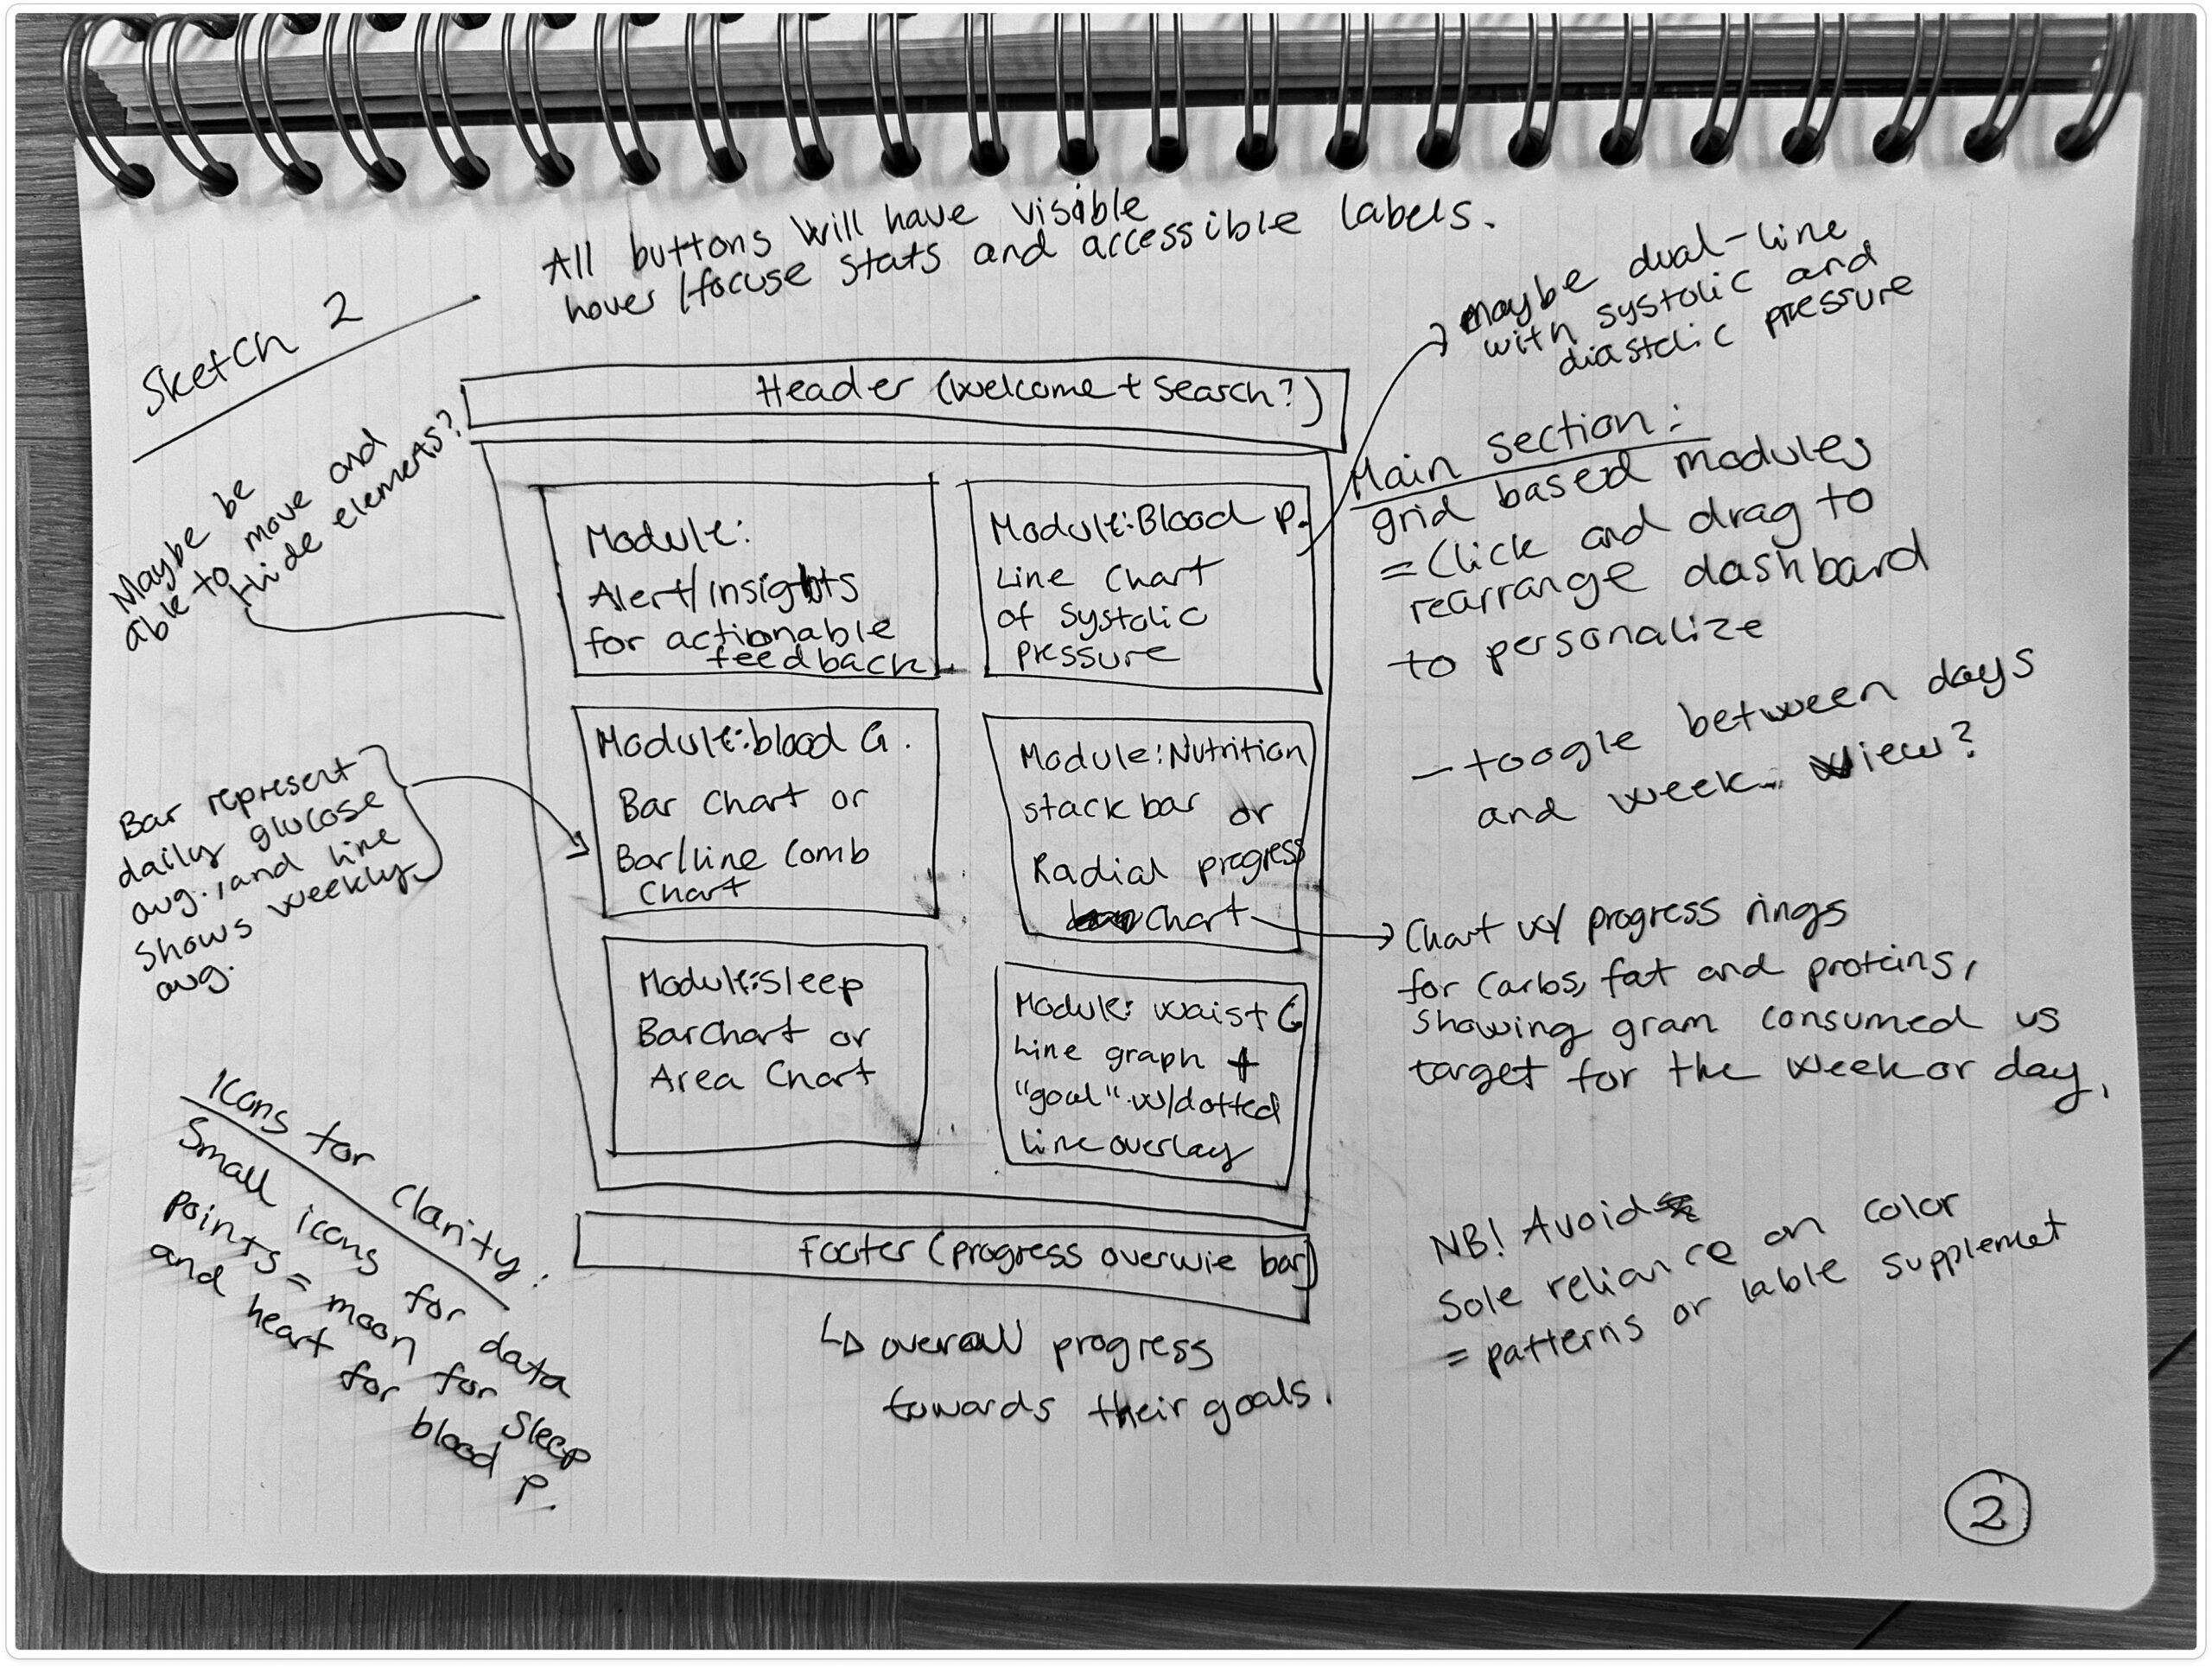 All buttons will have visible
hover/focuse stats and accessible labels.
Sketch 2
Maybe be
able to move and
Hide elements?
Header (welcome + search?)
maybe dual-line
with systolic and
diastolic pressure
Module:
Alert/Insights
for actionable
feedback.
Module: Blood P.
Line Chart
of systolic
pressure
Main section:
grid based modules
= Click and drag to
rearrange dashbard
to personalize
- toogle between days
and week view?
Bar represent
daily glucose
avg., and line
shows weekly
avg.
Module: blood G.
Bar Chart or
Bar/line Comb
Chart
Module: Nutrition
stack bar or
Radial progress
Chart
Chart w/ progress rings
for Carbs, fat and proteins,
showing gram consumed vs
target for the week or day,
Module: Sleep
Bar Chart or
Area Chart
Module: Waist C
Line graph +
"goal" w/dotted
line overlay
Icons for clarity:
Small icons for data
points = moon for Sleep
and heart for
blood P.
Footer (progress overwie bar)
overall progress
towards their goals.
NB! Avoid
Sole reliance on color
= patterns or lable supplemet
2